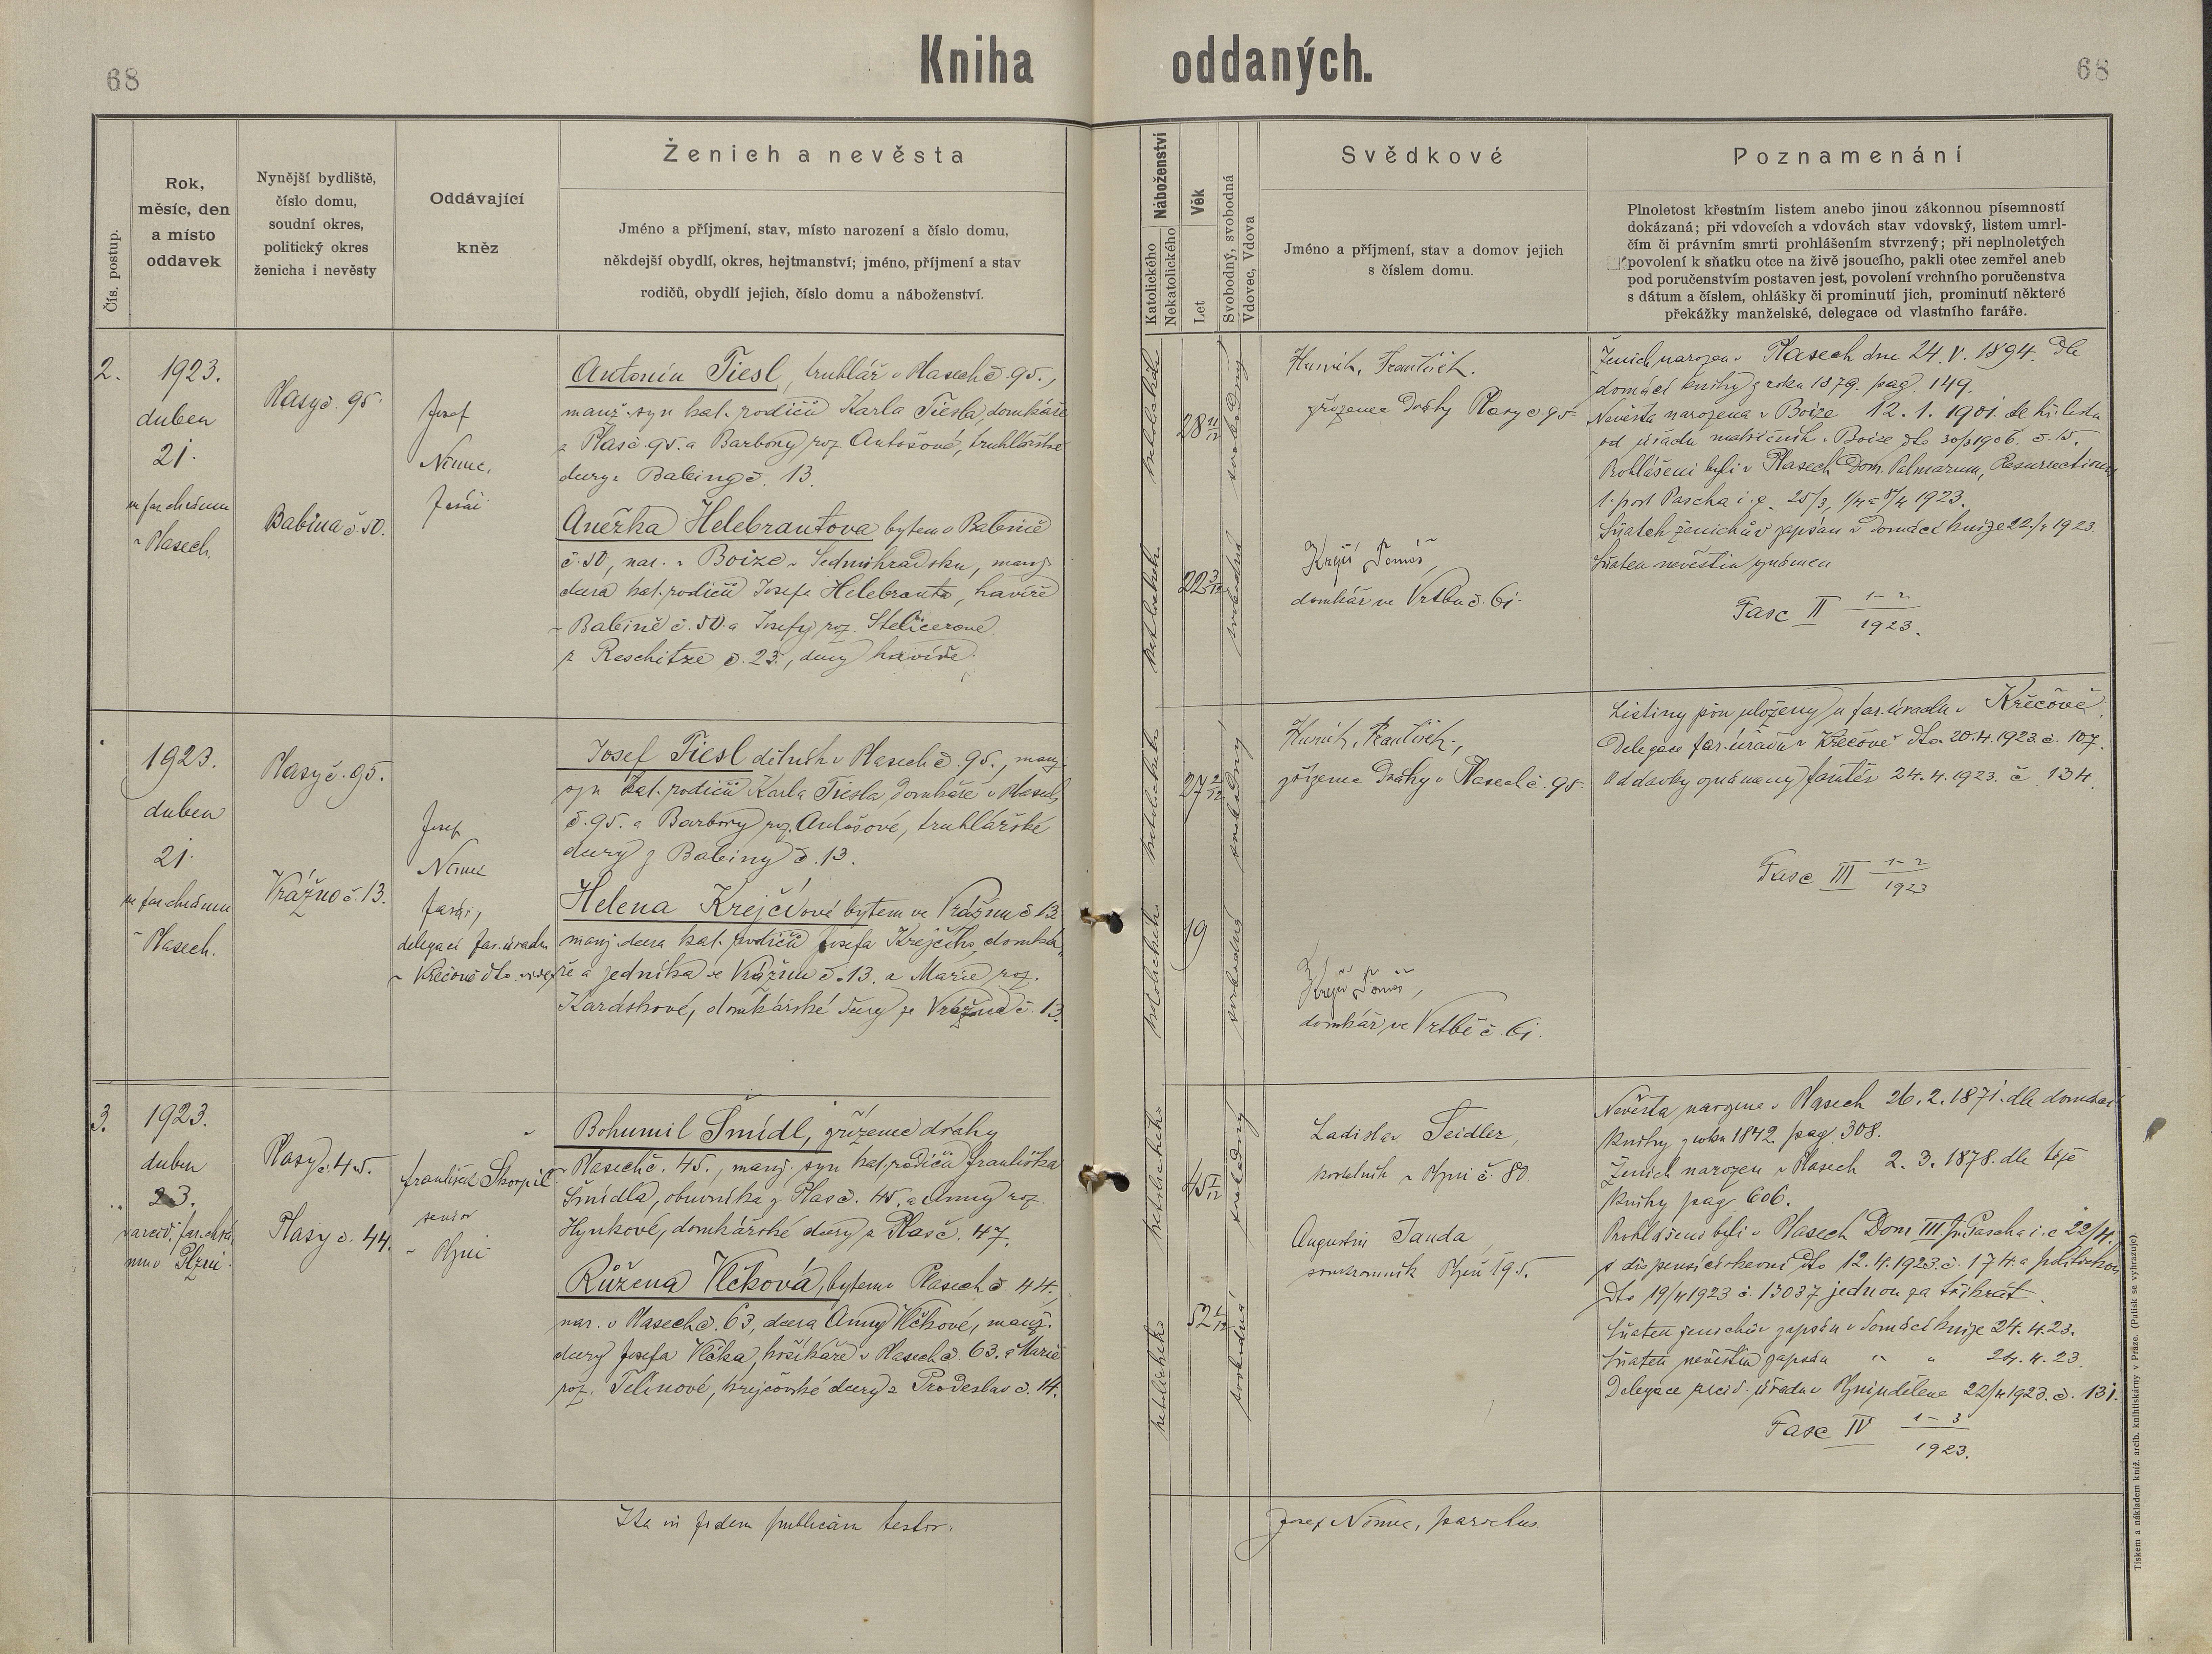 68
Kniha oddaných.
68
Čís. postup.
Rok,
měsíc, den
a místo
oddavek
Nynější bydliště,
číslo domu,
soudní okres,
politický okres
ženicha i nevěsty
Oddávající
kněz
Ženich a nevěsta
Jméno a příjmení, stav, místo narození a číslo domu,
někdejší obydlí, okres, hejtmanství; jméno, příjmení a stav
rodičů, obydlí jejich, číslo domu a náboženství.
Náboženství
Katolického
Nekatolického
Věk
Let
Svobodný, svobodná
Vdovec, Vdova
Svědkové
Jméno a příjmení, stav a domov jejich
s číslem domu.
Poznamenání
Plnoletost křestním listem anebo jinou zákonnou písemností
dokázaná; při vdovcích a vdovách stav vdovský, listem umrl-
čím či právním smrti prohlášením stvrzený; při neplnoletých
povolení k sňatku otce na živě jsoucího, pakli otec zemřel aneb
pod poručenstvím postaven jest, povolení vrchního poručenstva
s dátum a číslem, ohlášky či prominutí jich, prominutí některé
překážky manželské, delegace od vlastního faráře.
2.
1923.
duben
21.
ve far. chrámu
v Plasech.
Plasy č. 95.
Babina č 50.
Josef
Němec,
farář
Antonín Tiesl, truhlář v Plasech č. 95.,
manž. syn kat. rodičů Karla Tiesla, domkáře
z Plas č. 95. a Barbory roz. Antošové, truhlářské
dcery z Babiny č. 13.
Anežka Helebrantova bytem v Babině
č. 50, nar. v Boize v Sedmihradsku, manž.
dcera kat. rodičů Josefa Helebranta, havíře
v Babině č. 50. a Josefy roz.
z Reschitze č. 23., dcery havíře.
katolického
28 11/12
svobodný
katolického
22 3/12
svobodná
František.
zřízenec dráhy Plasy č. 95.
Krejčí Tomáš,
domkář ve Vrtbu č. 61.
Ženich narozen v Plasech dne 24. V. 1894. dle
domácí knihy z roku 1879. pag. 149.
Nevěsta narozena v Boize 12. 1. 1901. dle kř. listu
od úřadu matričních v Boize dto 30/3 1906. č. 15.
Prohlášeni byli v Plasech Dom. Palmarum, Resurrectionis
1. post Pascha i. e. 25/3, 1/4 a 8/4 1923.
Sňatek ženichův zapsán v domácí knize 22/4 1923.
Sňatek nevěstin oznámen
Fasc II 1-2
1923.
1923.
duben
21.
ve far. chrámu
v Plasech.
Plasy č. 95.
Vrážno č. 13.
Josef
Němec
farář,
delegací far. úřadu
v Křečově dto
Josef Tiesl dělník v Plasech č. 95., manž.
syn kat. rodičů Karla Tiesla, domkáře v Plasech
č. 95. a Barbory roz. Antošové, truhlářské
dcery z Babiny č. 13.
Helena Krejčíová bytem ve Vrážnu č 13
manž. dcera kat. rodičů Josefa Krejčího, domká-
ře a jedníka ve Vrážnu č. 13. a Marie roz.
Kardskové, domkářské dcery ze Vrážna č. 13.
katolického
27 2/12
svobodný
katolického
19
svobodná
František,
zřízenec dráhy v Plasech č. 95.
Krejčí Tomáš,
domkář ve Vrtbě č. 61.
Listiny jsou uloženy u far. úřadu v Křečově.
Delegace far. úřadu v Křečově dto. 20. 4. 1923. č. 107.
Oddavky oznámeny tamtéž 24. 4. 1923. č. 134.
Fasc III 1-2
1923
3.
1923.
duben
23.
v arcid. far. chrá-
mu v Plzni.
Plasy č. 45.
Plasy č. 44.
František Škorpil
senior
v Plzni
Bohumil Šmídl, zřízenec dráhy
v Plasech č. 45., manž. syn kat. rodičů Františka
Šmídla, obuvníka z Plas č. 45. a Anny roz.
Hynkové, domkářské dcery z Plas č. 47.
Růžena Vlčková, bytem v Plasech č. 44.,
nar. v Plasech č. 63, dcera Anny Vlčkové, manž.
dcery Josefa Vlčka, košíkáře v Plasech č. 63. a Marie
roz. Telínové, krejčovské dcery z Prodeslav č. 14.
katolického
45 1/12
svobodný
katolického
52 1/12
svobodná
Ladislav Seidler,
kostelník v Plzni č. 80.
Augustin Janda,
soukromník Plzeň 195.
Nevěsta narozena v Plasech 26. 2. 1871. dle domácí
knihy z roku 1842. pag. 308.
Ženich narozen v Plasech 2. 3. 1878. dle téže
knihy pag. 606.
Prohlášeni byli v Plasech Dom III. p. Pascha i. e. 22/4.
s dispensí církevní dto 12. 4. 1923. č. 174. a politickou
dto 19/4 1923 č. 13037 jednou za třikrát.
Sňatek ženichův zapsán v domácí knize 24. 4. 23.
Sňatek nevěstin zapsán " " 24. 4. 23.
Delegace arcid. úřadu v Plzni udělena 22/4 1923. č. 131.
Fasc IV 1-3
1923.
Ita in fidem publicam testor.
Josef Němec, parochus.
Tiskem a nákladem kníž. arcib. knihtiskárny v Praze. (Patisk se vyhrazuje)